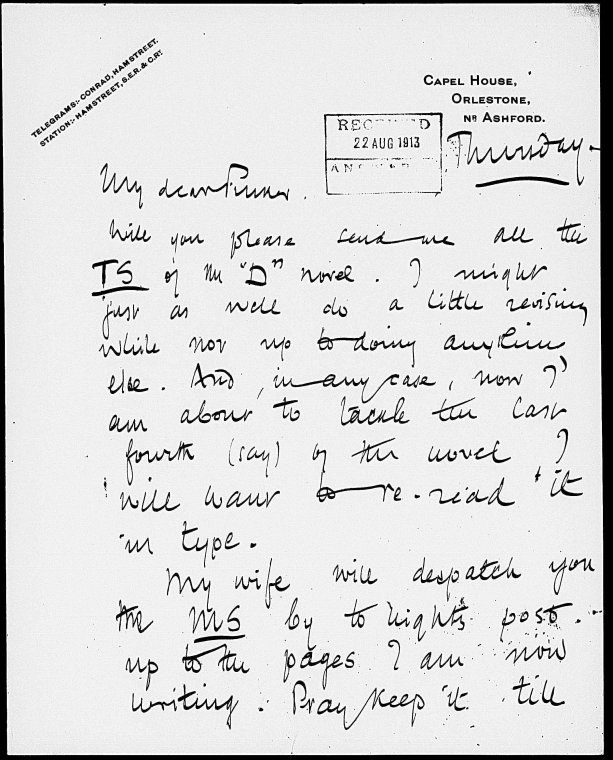 TELEGRAMS:- CONRAD, HAMSTREET.
STATION:- HAMSTREET, S.E.R. & C.RY
CAPEL HOUSE,
ORLESTONE,
NR ASHFORD.
RECEIVED
22 AUG 1913
Thursday-
My dear Pinker.
Will you please send me all the
TS of the "D" novel. I might
just as well do a little revising
while not up to doing anything
else. And, in any case, now I
am about to tackle the last
fourth (say) of the novel I
will want to re-read it
in type.
My wife will despatch you
the MS by to night's post.
up to the pages I am now
writing. Pray keep it till